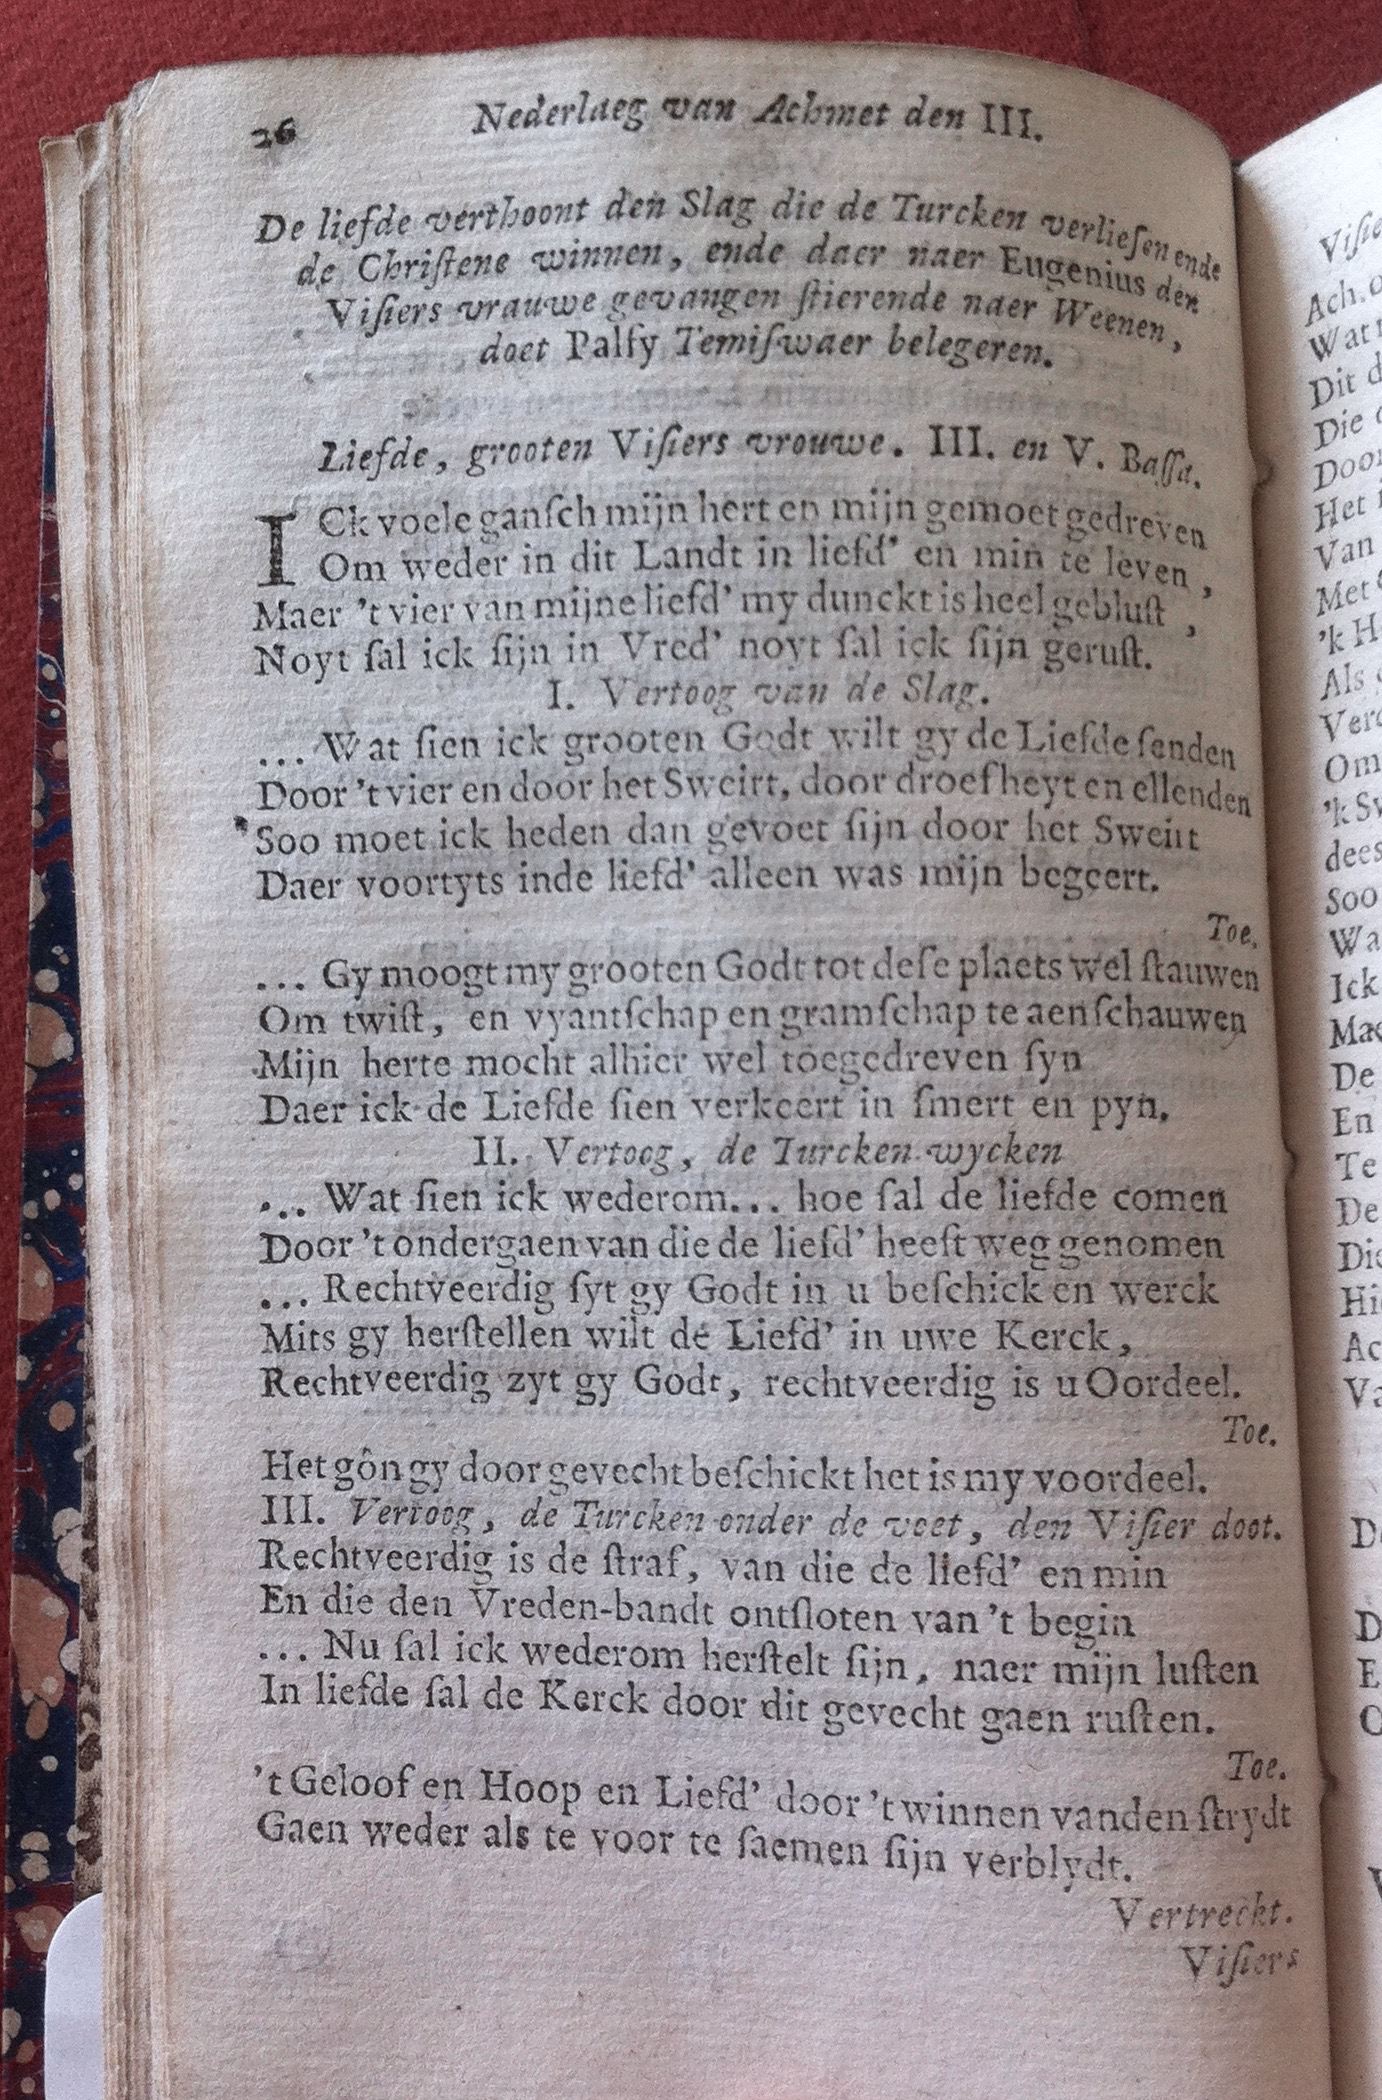 26 Nederlaeg van Achmet den III.
De liefde verthoont den Slag die de Turcken verlieſen ende
de Chriſtene winnen, ende daer naer Eugenius den
Viſiers vrauwe gevangen ſtierende naer Weenen,
doet Palfy Temiſwaer belegeren.
Liefde, grooten Viſiers vrouwe. III. en V. Baſſa.
ICk voele ganſch mijn hert en mijn gemoet gedreven
Om weder in dit Landt in liefd' en min te leven,
Maer 't vier van mijne liefd' my dunckt is heel gebluſt,
Noyt ſal ick ſijn in Vred' noyt ſal ick ſijn geruſt.
I. Vertoog van de Slag.
... Wat ſien ick grooten Godt wilt gy de Liefde ſenden
Door 't vier en door het Sweirt, door droefheyt en ellenden
Soo moet ick heden dan gevoet ſijn door het Sweirt
Daer voortyts inde liefd' alleen was mijn begeert.
Toe.
... Gy moogt my grooten Godt tot deſe plaets wel ſtauwen
Om twiſt, en vyantſchap en gramſchap te aenſchauwen
Mijn herte mocht alhier wel toegedreven ſyn
Daer ick de Liefde ſien verkeert in ſmert en pyn.
II. Vertoog, de Turcken wycken
... Wat ſien ick wederom... hoe ſal de liefde comen
Door 't ondergaen van die de liefd' heeft weg genomen
... Rechtveerdig ſyt gy Godt in u beſchick en werck
Mits gy herſtellen wilt de Liefd' in uwe Kerck,
Rechtveerdig zyt gy Godt, rechtveerdig is u Oordeel.
Toe.
Het gôn gy door gevecht beſchickt het is my voordeel.
III. Vertoog, de Turcken onder de voet, den Viſier doot.
Rechtveerdig is de ſtraf, van die de liefd' en min
En die den Vreden-bandt ontſloten van 't begin
... Nu ſal ick wederom herſtelt ſijn, naer mijn luſten
In liefde ſal de Kerck door dit gevecht gaen ruſten.
Toe.
't Geloof en Hoop en Liefd' door 't winnen vanden ſtrydt
Gaen weder als te voor te ſaemen ſijn verblydt.
Vertreckt.
Viſiers
Ach.
Dit
Die
Door
Het
Van
Met
'k
Als
Om
Soo
Ick
De
En
Te
De